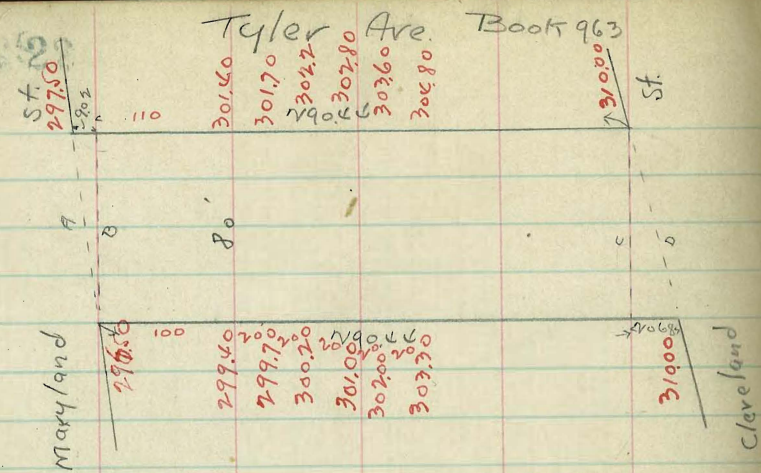 Tyler Ave. Book 963
St.
297.50
29.02
110
301.40
301.70
302.2
302.80
303.60
304.80
790.44
310.00
St.
A
B
80'
C
D
Maryland
296.50
100
299.40
20
299.70
20
300.20
20
301.00
20
302.00
20
303.30
790.44
20.68
310.00
Cleveland